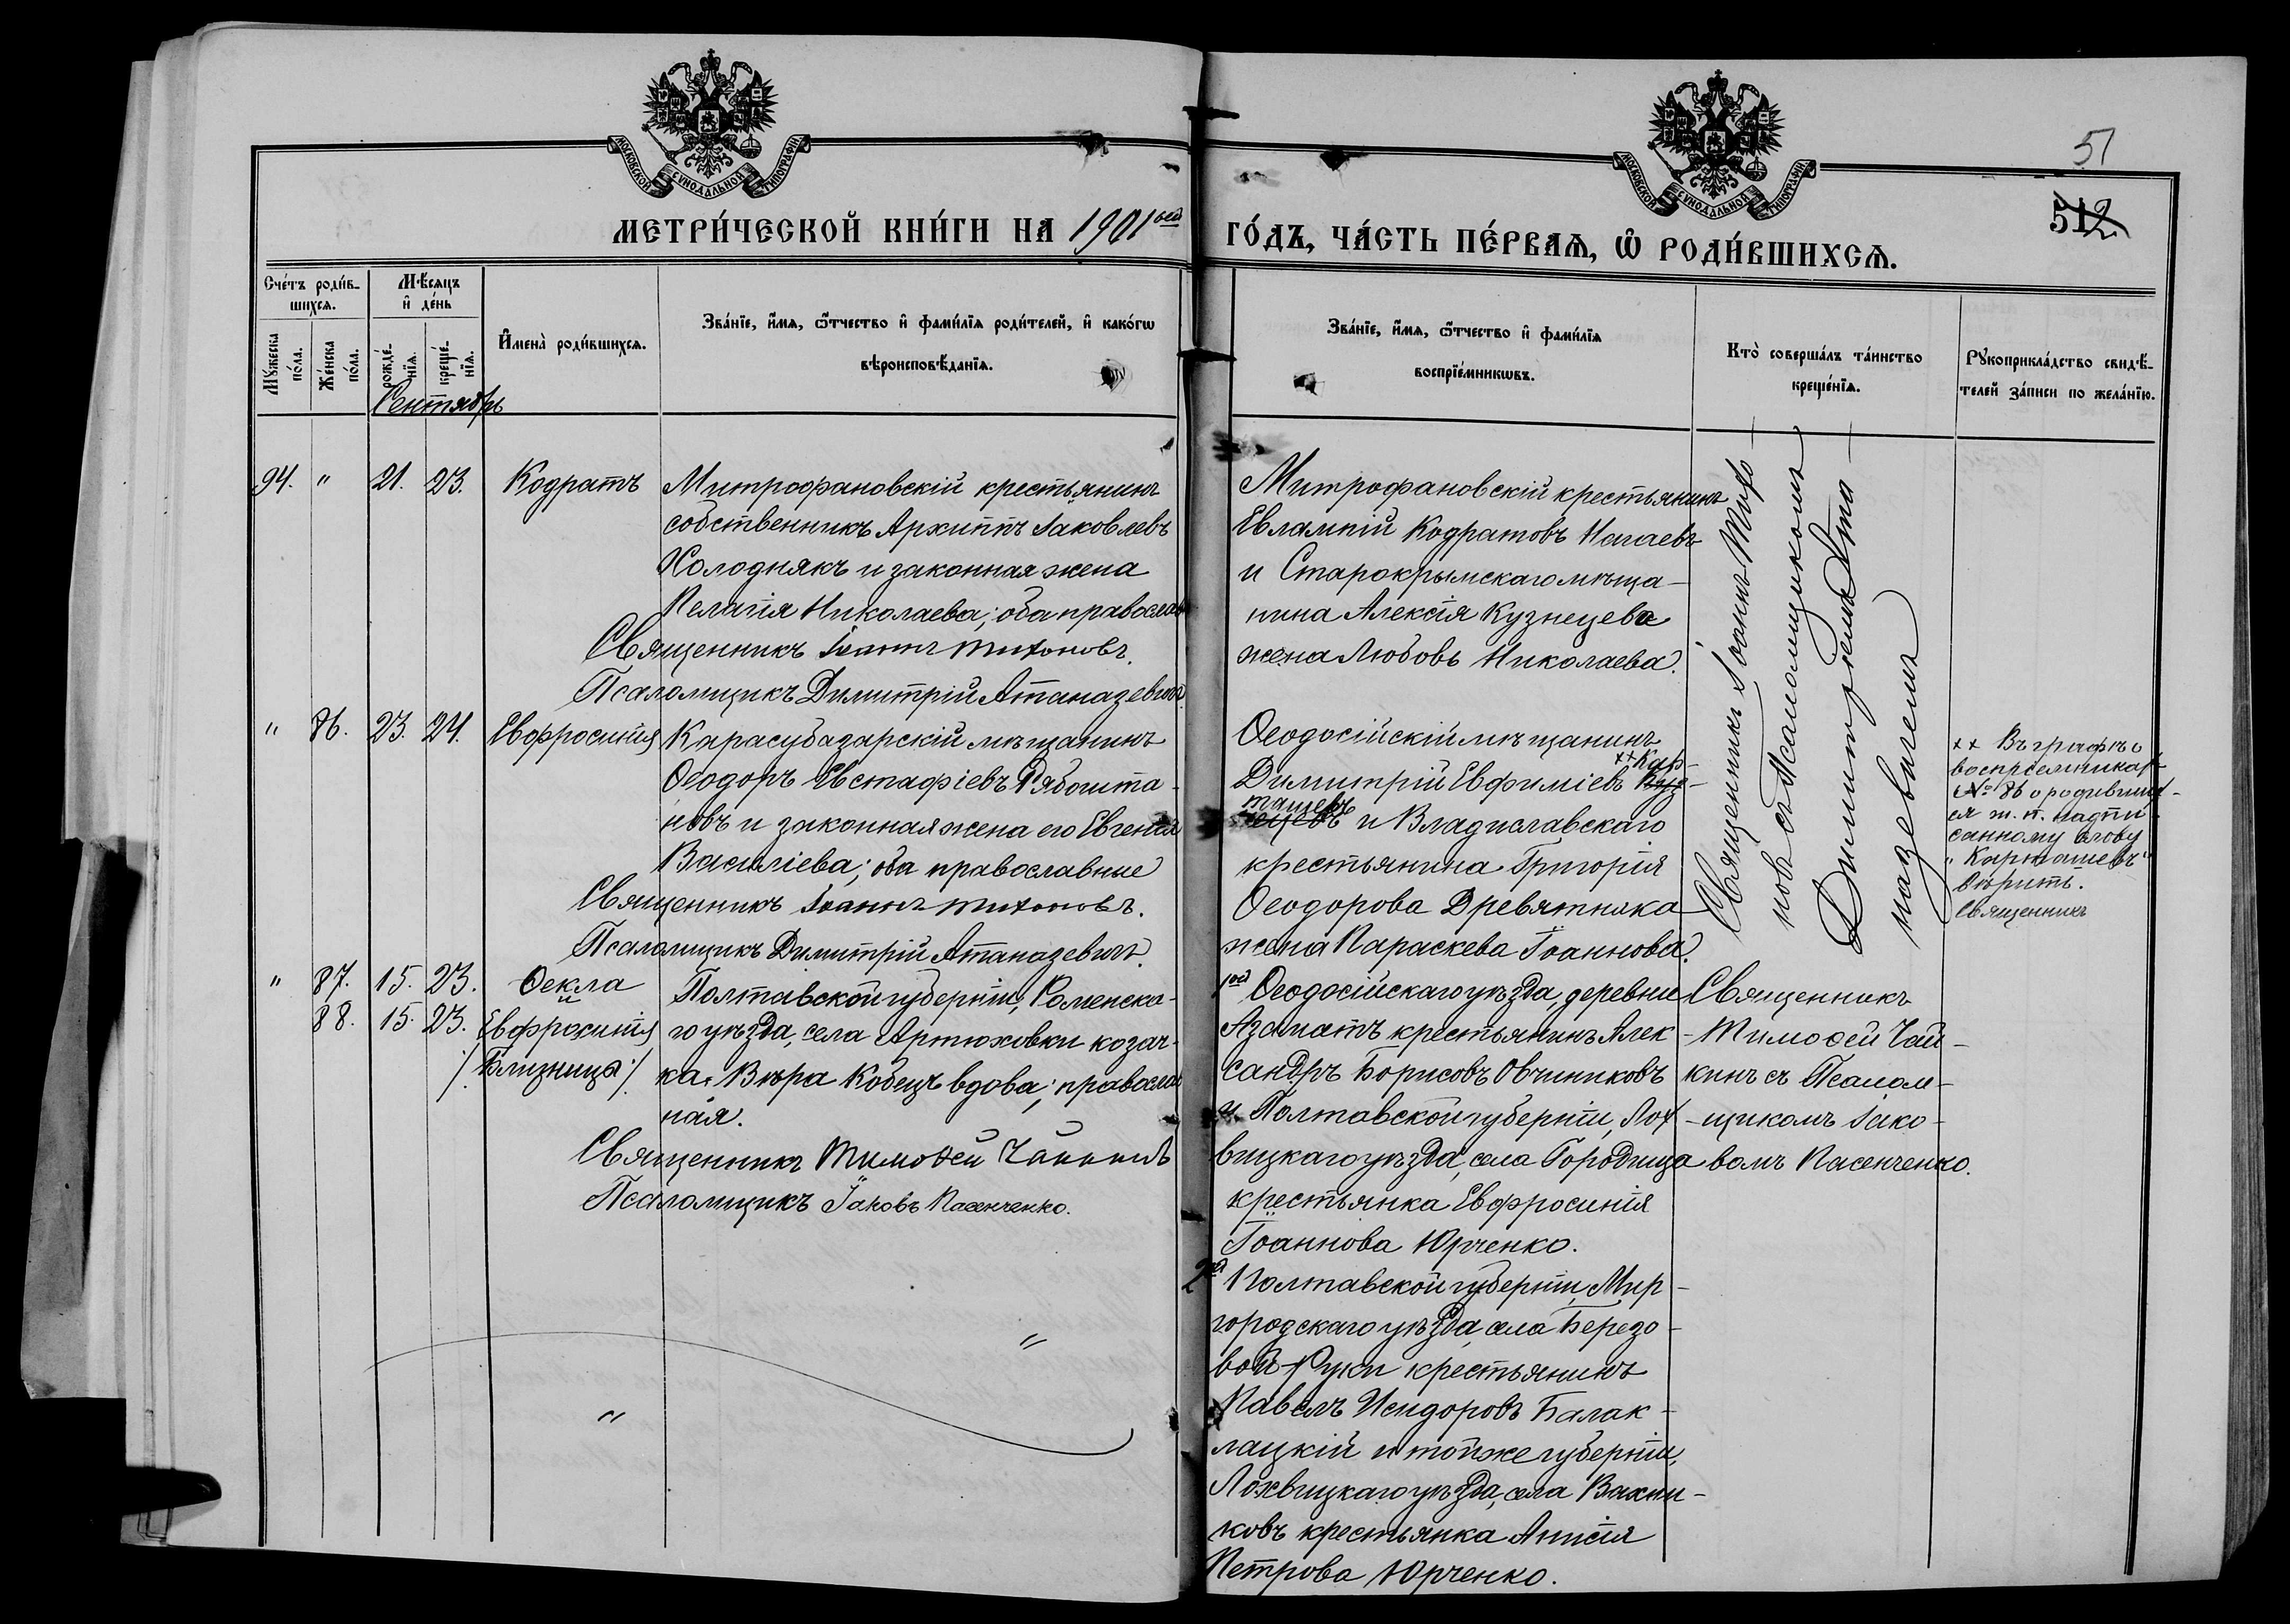 МОСКОВСКОЙ СѴНОДАЛЬНОЙ ТИПОГРАФІИ
МОСКОВСКОЙ СѴНОДАЛЬНОЙ ТИПОГРАФІИ
51
512
МЕТРИ́ЧЕСКОЙ КНИ́ГИ НА 1901ый
ГО́ДЪ, ЧА́СТЬ ПЕ́РВАѦ, Ѡ҆ РОДИ́ВШИХСѦ.
Сче́тъ роди́в-
шихсѧ.
Мꙋ́жеска по́ла.
Же́нска по́ла.
Мѣ́сѧцъ
и҆ де́нь
рожде́-
нїѧ.
креще́-
нїѧ.
Сентябрь
И҆мена̀ роди́вшихсѧ.
Зва́нїе, и҆́мѧ, ѻ҆́тчество и҆ фами́лїѧ роди́телей, и҆ како́гѡ
вѣроисповѣ́данїѧ.
Зва́нїе, и҆́мѧ, ѻ҆́тчество и҆ фами́лїѧ
воспрїе́мникѡвъ.
Кто̀ соверша́лъ та́инство
креще́нїѧ.
Рꙋкоприкла́дство свидѣ́-
телей за́писи по жела́нїю.
94. " 21. 23. Кодратъ
Митрофановскій крестьянинъ
собственникъ Архиппъ Іаковлевъ
Холоднякъ и законная жена
Пелагія Николаева; оба православ
Священникъ Іоаннъ Тихоновъ.
Псаломщикъ Димитрій Атаназевичъ
Митрофановскій крестьянинъ
Евлампій Кодратовъ Нагаевъ
и Старокрымскаго мѣща-
нина Алексія Кузнецова
жена Любовь Николаева.
Священникъ Іоаннъ Тихо-
новъ съ Псаломщикомъ
Димитріемъ Ата-
назевичемъ
" 86. 23. 24. Евфросинія
Карасубазарскій мѣщанинъ
Ѳеодоръ Евстафіевъ Рябошта-
новъ и законная жена его Евгенія
Василіева; оба православные
Священникъ Іоаннъ Тихоновъ.
Псаломщикъ Димитрій Атаназевичъ.
Ѳеодосійскій мѣщанинъ
×× Кар-
Димитрій Евфиміевъ Куз-
ташевъ
нецовъ и Владиславскаго
крестьянина Григорія
Ѳеодорова Древятняка
жена Параскева Іоаннова.
×× Въ графѣ о
воспріемникахъ
№ 86 о родивших-
ся ж. п. надпи-
санному слову
"Карташевъ"
вѣрить.
Священникъ
" 87. 15. 23. Ѳекла
и
88. 15. 23. Евфросинія
/. Близница ./
Полтавской губерніи, Роменска-
го уѣзда, села Артюховки козач-
ка Вѣра Кобецъ вдова; православ
ная.
Священникъ Тимоѳей Чайкинъ
Псаломщикъ Іаковъ Пасенченко.
1ой Ѳеодосійскаго уѣзда, деревни
Азаматъ крестьянинъ Алек-
сандръ Борисовъ Овчинниковъ
и Полтавской губерніи, Лох-
вицкаго уѣзда, села Городища
крестьянка Евфросинія
Іоаннова Юрченко.
2ой Полтавской губерніи, Мир-
городскаго уѣзда, села Березо-
вой-Руки крестьянинъ
Павелъ Исидоровъ Балак-
лацкій и той же губерніи,
Лохвицкаго уѣзда, села Вахни-
ковъ крестьянка Анисія
Петрова Юрченко.
Священникъ
Тимоѳей Чай-
кинъ съ Псалом-
щикомъ Іако-
вомъ Пасенченко.
"
"